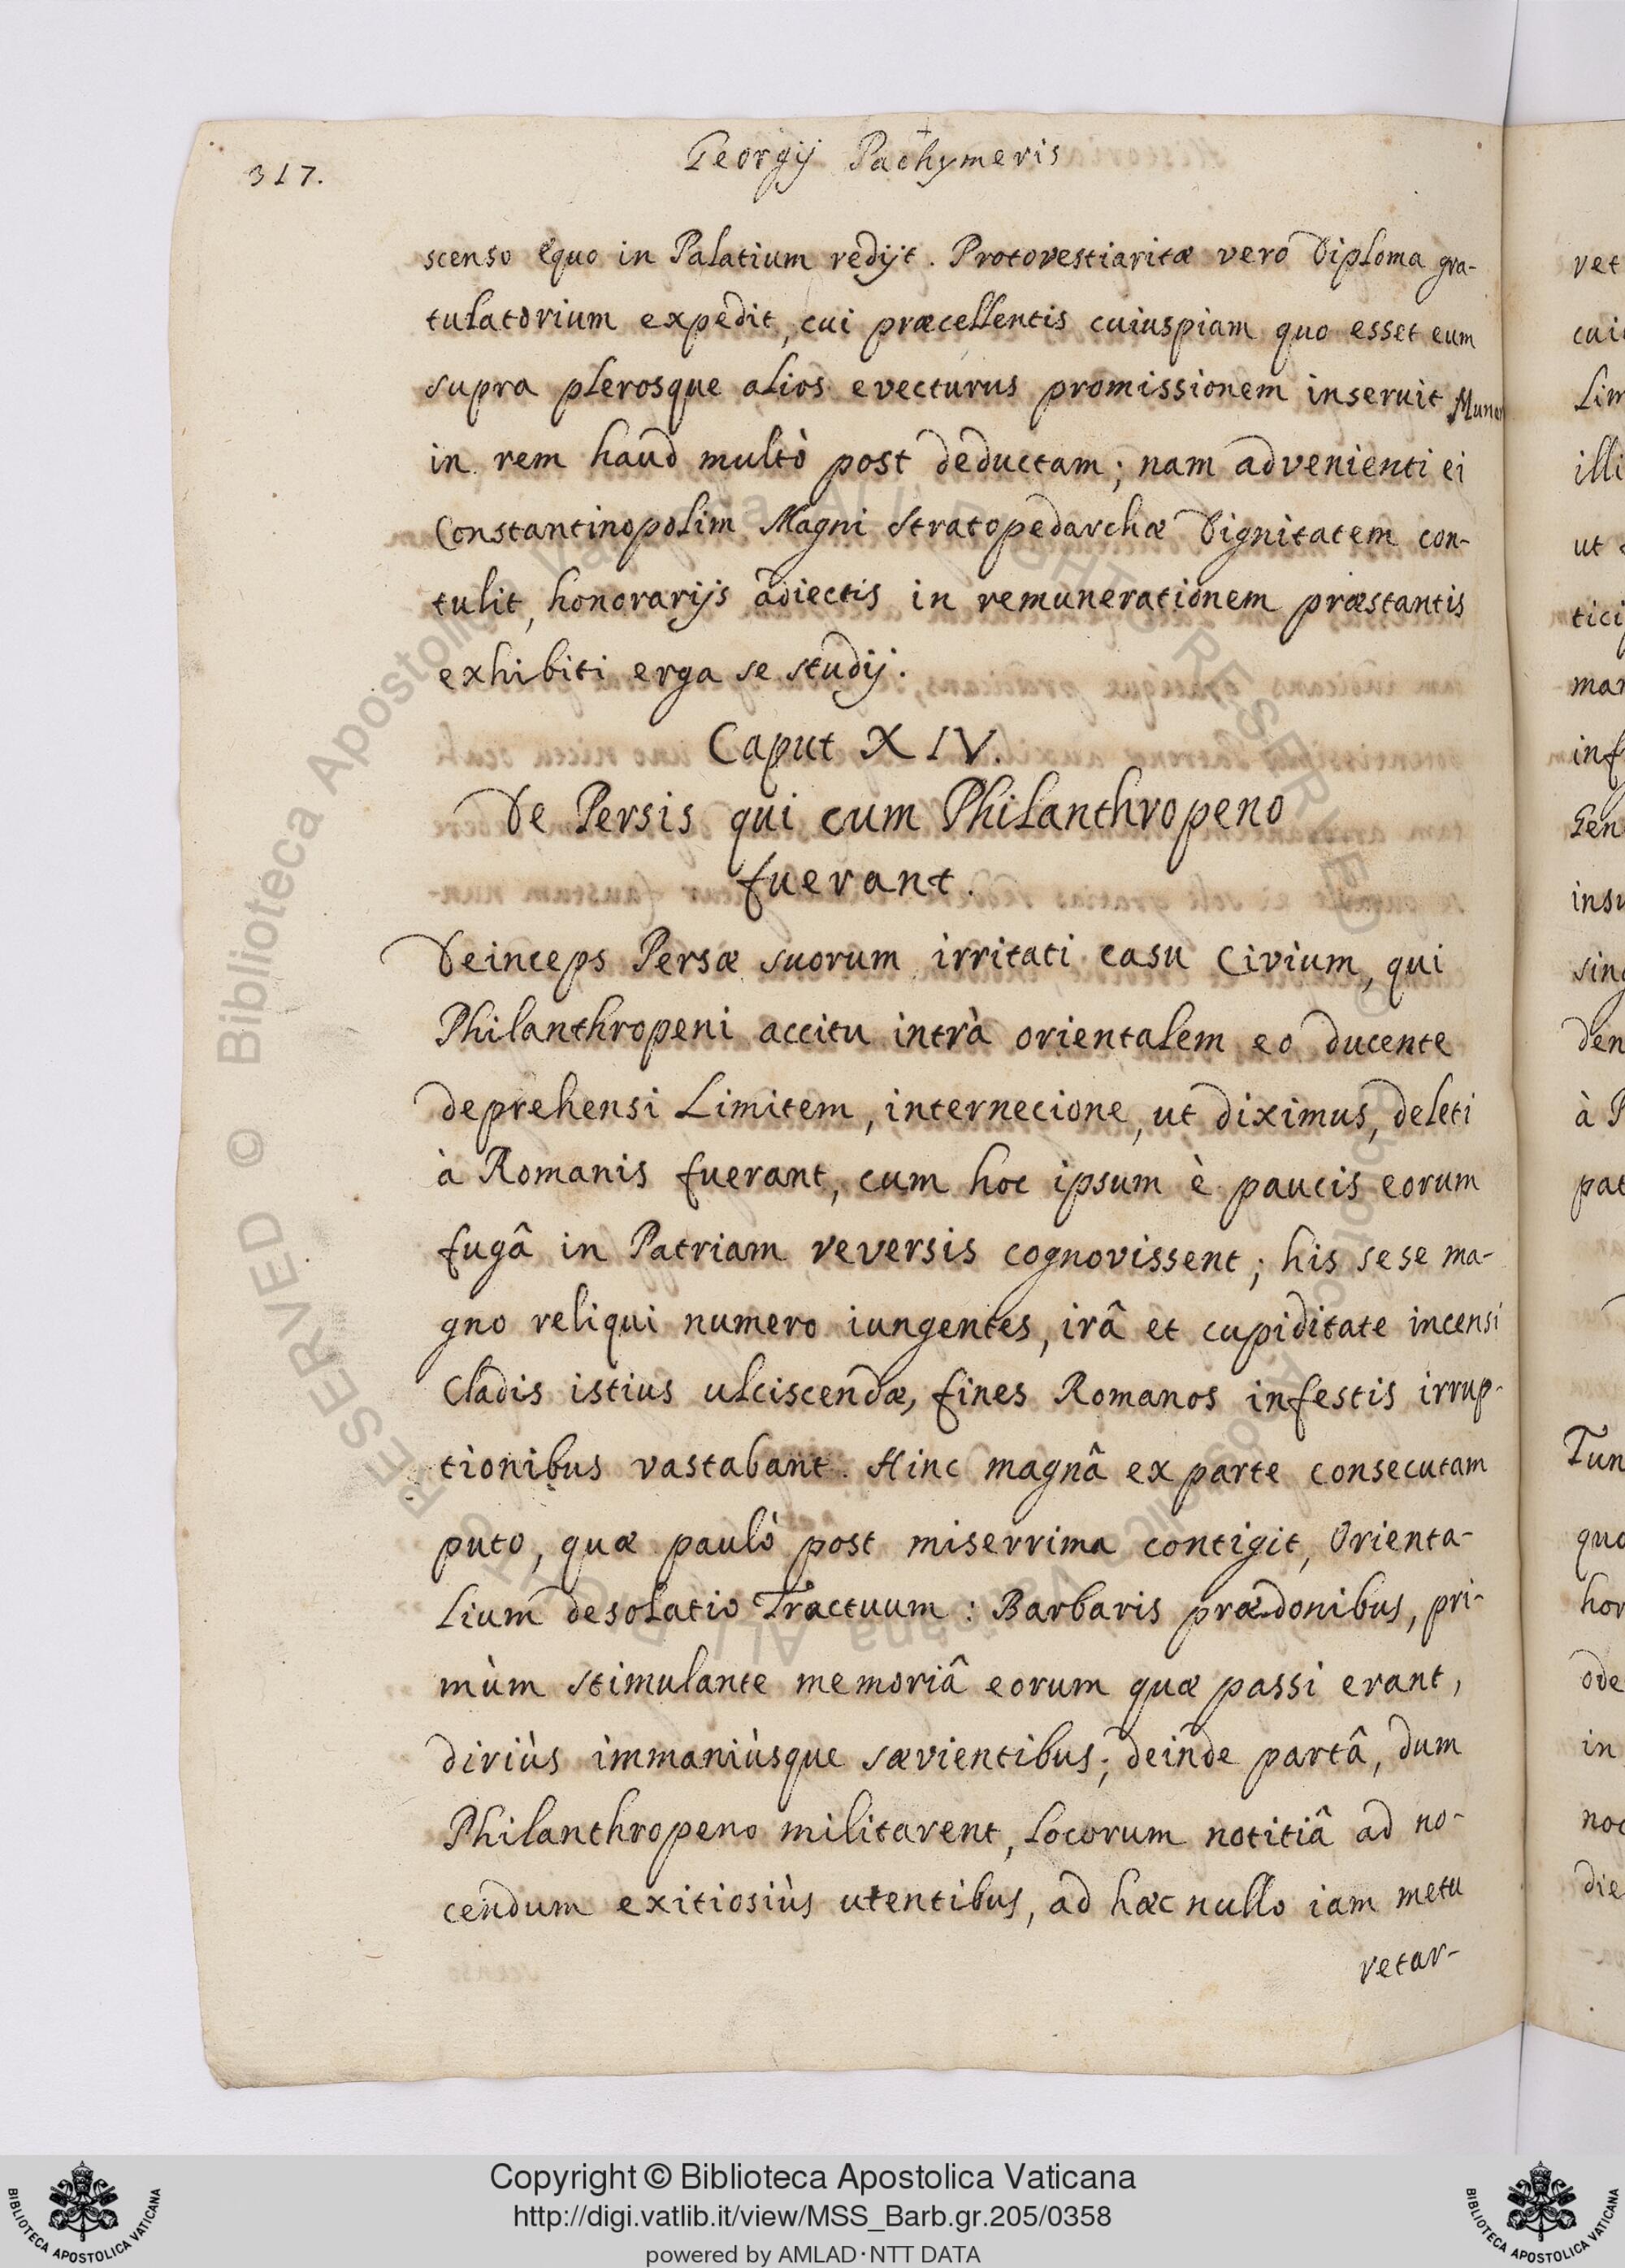 317.
Georgij Pachymeris
scenso Equo in Palatium redijt. Protovestiaritæ vero Diploma gra-
tulatorium expedit, cui præcellentis cuiuspiam quo esset eum
supra plerosque alios evecturus promissionem inseruit
in rem haud multò post deductam; nam advenienti ei
Constantinopolim Magni Stratopedarchæ Dignitatem con-
tulit, honorarijs adiectis in remunerationem præstantis
exhibiti erga se studij.
Caput XIV.
De Persis qui cum Philanthropeno
fuerant.
Deinceps Persæ suorum irritati casu Civium, qui
Philanthropeni accitu intrà orientalem eo ducente
deprehensi Limitem, internecione, ut diximus, deleti
à Romanis fuerant, cum hoc ipsum è paucis eorum
fugâ in Patriam reversis cognovissent; his sese ma-
gno reliqui numero iungentes, irâ et cupiditate incensi
Cladis istius ulciscendæ, fines Romanos infestis irrup-
tionibus vastabant. Hinc magnâ ex parte consecutam
puto, quæ paulò post miserrima contigit, Orienta-
lium desolatio Tractuum: Barbaris prædonibus, pri-
mùm stimulante memoriâ eorum quæ passi erant,
diriùs immaniùsque sævientibus; deinde partâ, dum
Philanthropeno militarent, locorum notitiâ ad no-
cendum exitiosiùs utentibus, ad hæc nullo iam metu
retar-
Copyright © Biblioteca Apostolica Vaticana
http://digi.vatlib.it/view/MSS_Barb.gr.205/0358
powered by AMLAD·NTT DATA